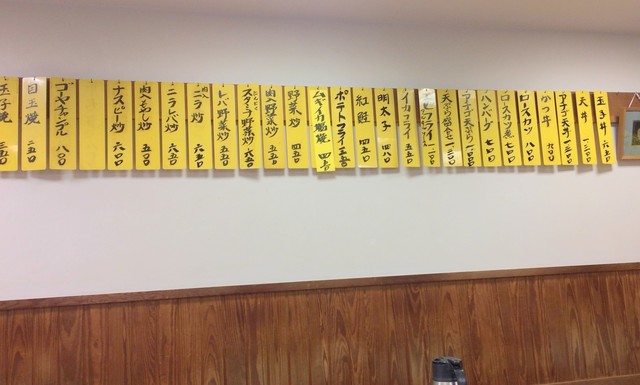 玉子丼 六五〇
天丼 一、三〇〇
アナゴ天丼 一、三〇〇
かつ丼 九〇〇
ロースカツ 八〇〇
ロースカツ煮 七〇〇
ハンバーグ 七〇〇
アナゴ天ぷら 一、000
天ぷら盛合せ 一、三〇〇
フライ 一、二〇〇
イカフライ 五五〇
明太子 四八〇
紅鮭 四五〇
ポテトフライ 三五〇
野菜炒 四五〇
肉入野菜炒 五五〇
スタミナ野菜炒 六五〇
レバ野菜炒 五五〇
肉入ニラ炒 六五〇
ニラレバ炒 六五〇
肉入もやし炒 五〇〇
ナスピー炒 六〇〇
ゴーヤチャンプル 八〇〇
目玉焼 二五〇
玉子焼 三五〇